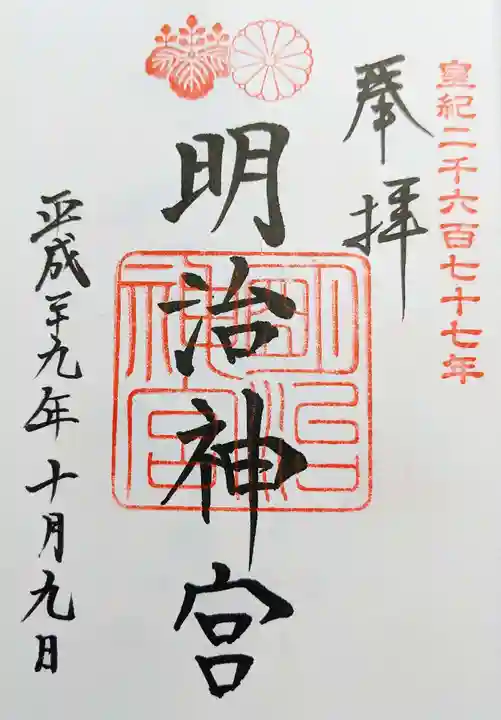 皇紀二千六百七十七年
奉拝
明治神宮
明治神宮
平成廿九年十月九日